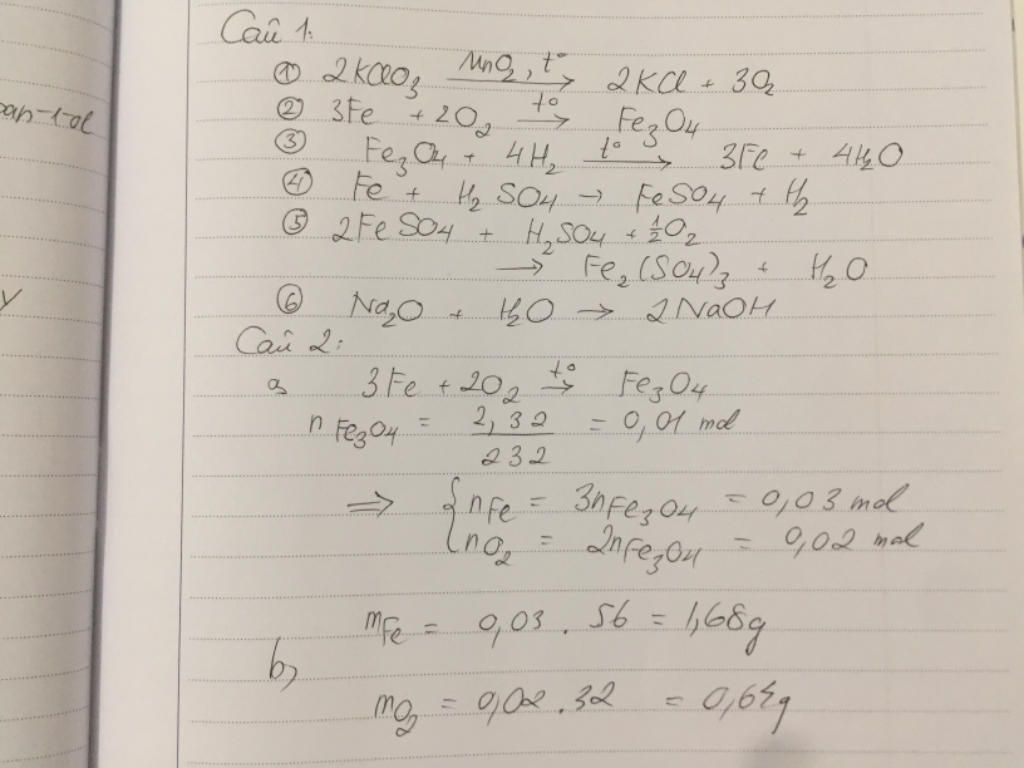 pan-1-ol
y
Câu 1:
① 2KClO₃ —MnO₂, t°→ 2KCl + 3O₂
② 3Fe + 2O₂ —t°→ Fe₃O₄
③ Fe₃O₄ + 4H₂ —t°→ 3Fe + 4H₂O
④ Fe + H₂SO₄ → FeSO₄ + H₂
⑤ 2FeSO₄ + H₂SO₄ + ½O₂
→ Fe₂(SO₄)₃ + H₂O
⑥ Na₂O + H₂O → 2NaOH
Câu 2:
a, 3Fe + 2O₂ —t°→ Fe₃O₄
n Fe₃O₄ = 2,32/232 = 0,01 mol
⇒ { nFe = 3nFe₃O₄ = 0,03 mol
nO₂ = 2nFe₃O₄ = 0,02 mol
mFe = 0,03 . 56 = 1,68g
b,
mO₂ = 0,02 . 32 = 0,64g